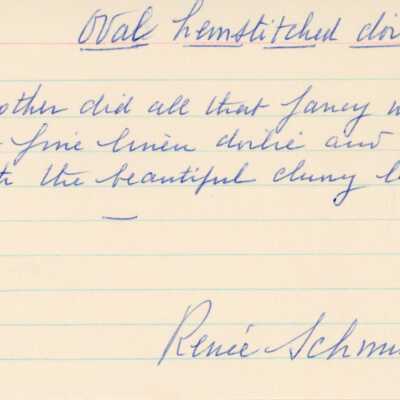 Oval hemstitched doi
other did all that fancy w
fine linen doilie and
th the beautiful cluny l
Renée Schm